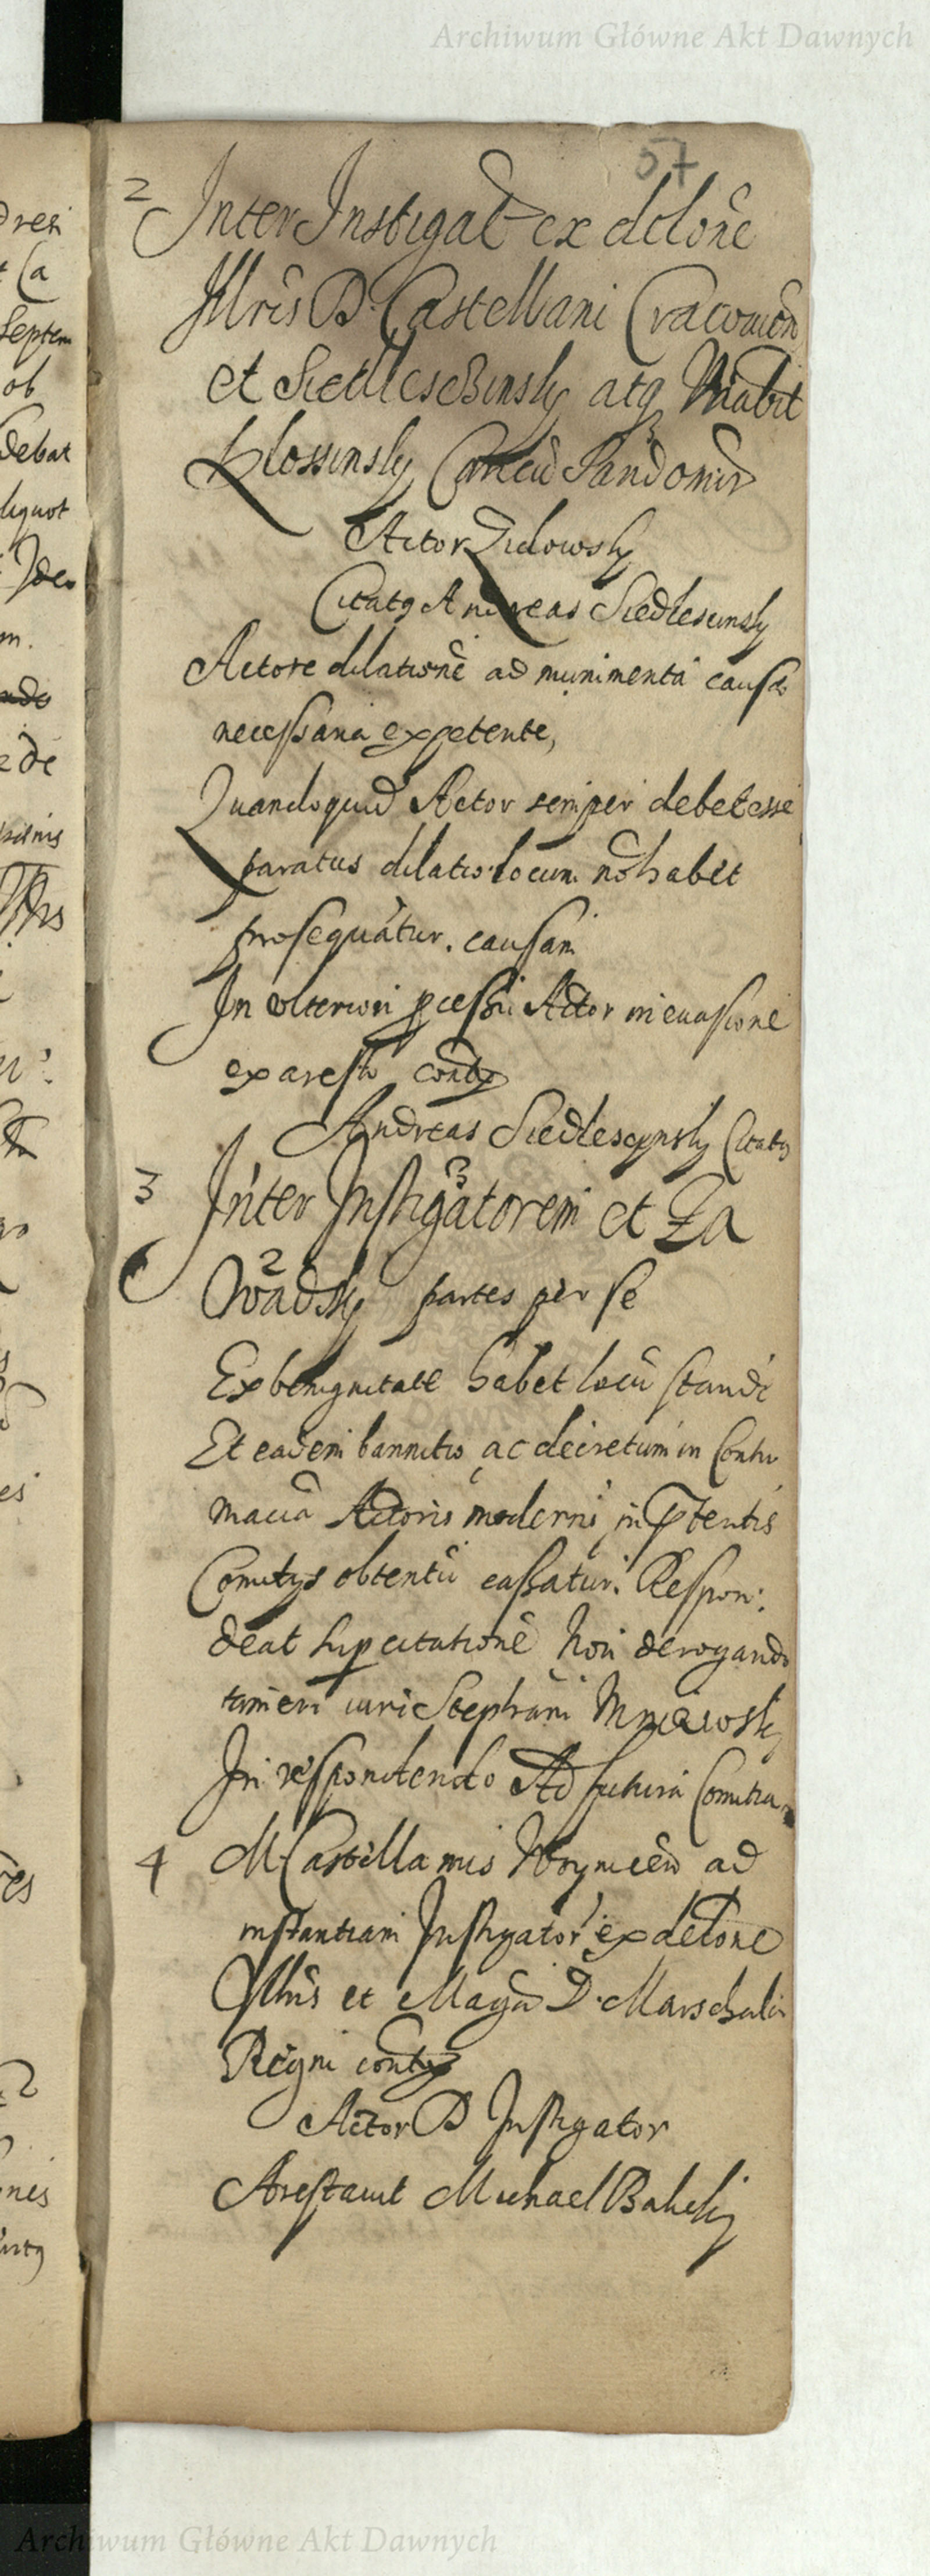 Archiwum Główne Akt Dawnych
57
2 Inter Instigat ex delone
Illris D. Castellani Cracovien
et Siedlesczinsky atq
Klossinsky Sandomir
Actor Zidowsky
Citatq Andreas Siedlescinsky
Actore dilatione ad munimenta causae
necessaria expetente,
Quandoquid Actor semper debet esse
paratus dilatio locum no habet
prosequatur causam
In ulteriori pcessu Actor in evasione
ex aresto condem
Andreas Siedlescynsky Citatq
3 Inter Instigatorem et Za
wadsky partes per se
Ex benignitate habet locu standi
Et eadem bannitio ac decretum in Contu
macia Actoris moderni in ptentis
Comitys obtentu cassatur. Respon:
deat sup citatione Non derogando
tamen iuri Stephani
In respondendo Ad futura Comitia
4 M Castellanus ad
instantiam Instigator ex delone
Illris et Magn D. Marschalci
Regni
Actor D Instigator
Arestavit Michael
Archiwum Główne Akt Dawnych